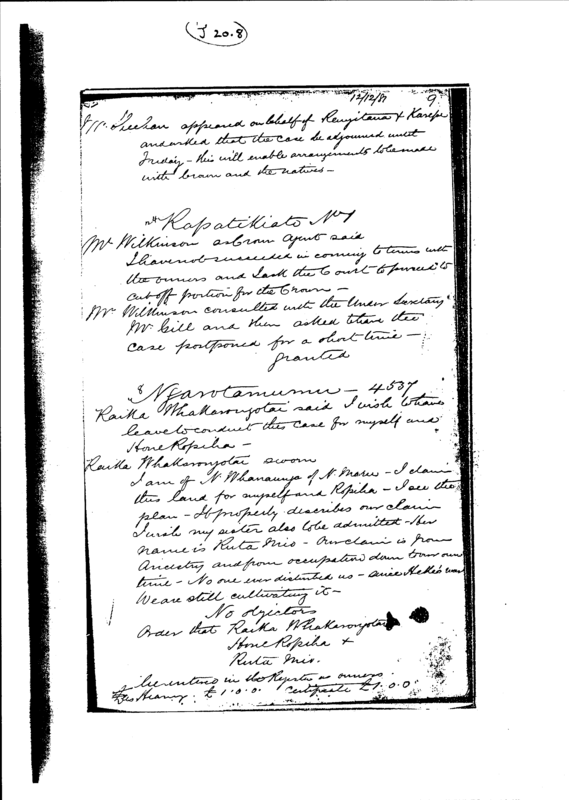 J 20.8
12/12/87 9
appeared on behalf of Rengitana & Karepe
and asked that the case be adjourned until
Friday – this will enable arrangements to be made
with Crown and the natives –
Kapatikiato No 1
Mr Wilkinson as Crown Agent said
I have not succeeded in coming to terms with
the owners and I ask the Court to proceed to
cut off portion for the Crown –
Mr Wilkinson consulted with the Under Secretary
Mr Gill and then asked to have the
case postponed for a short time –
Granted
8 Ngarotamumu – 4537
Raika Whakarongotai said I wish to have
leave to conduct this case for myself and
Hone Ropiha –
Raika Whakarongotai sworn
I am of N. Whanaunga of N. Maru – I claim
this land for myself and Ropiha – I see the
plan – It properly describes our claim
I wish my sister also to be admitted – Her
name is Ruta Mio – Our claim is from
Ancestry and from occupation down to our own
time – No one ever disturbed us – since Heke's war
We are still cultivating it –
No objectors
Order that Raika Whakarongotai
Hone Ropiha &
Ruta Mio.
be entered in the Register as owners
Fees Hearing £1.0.0 Certificate £1.0.0